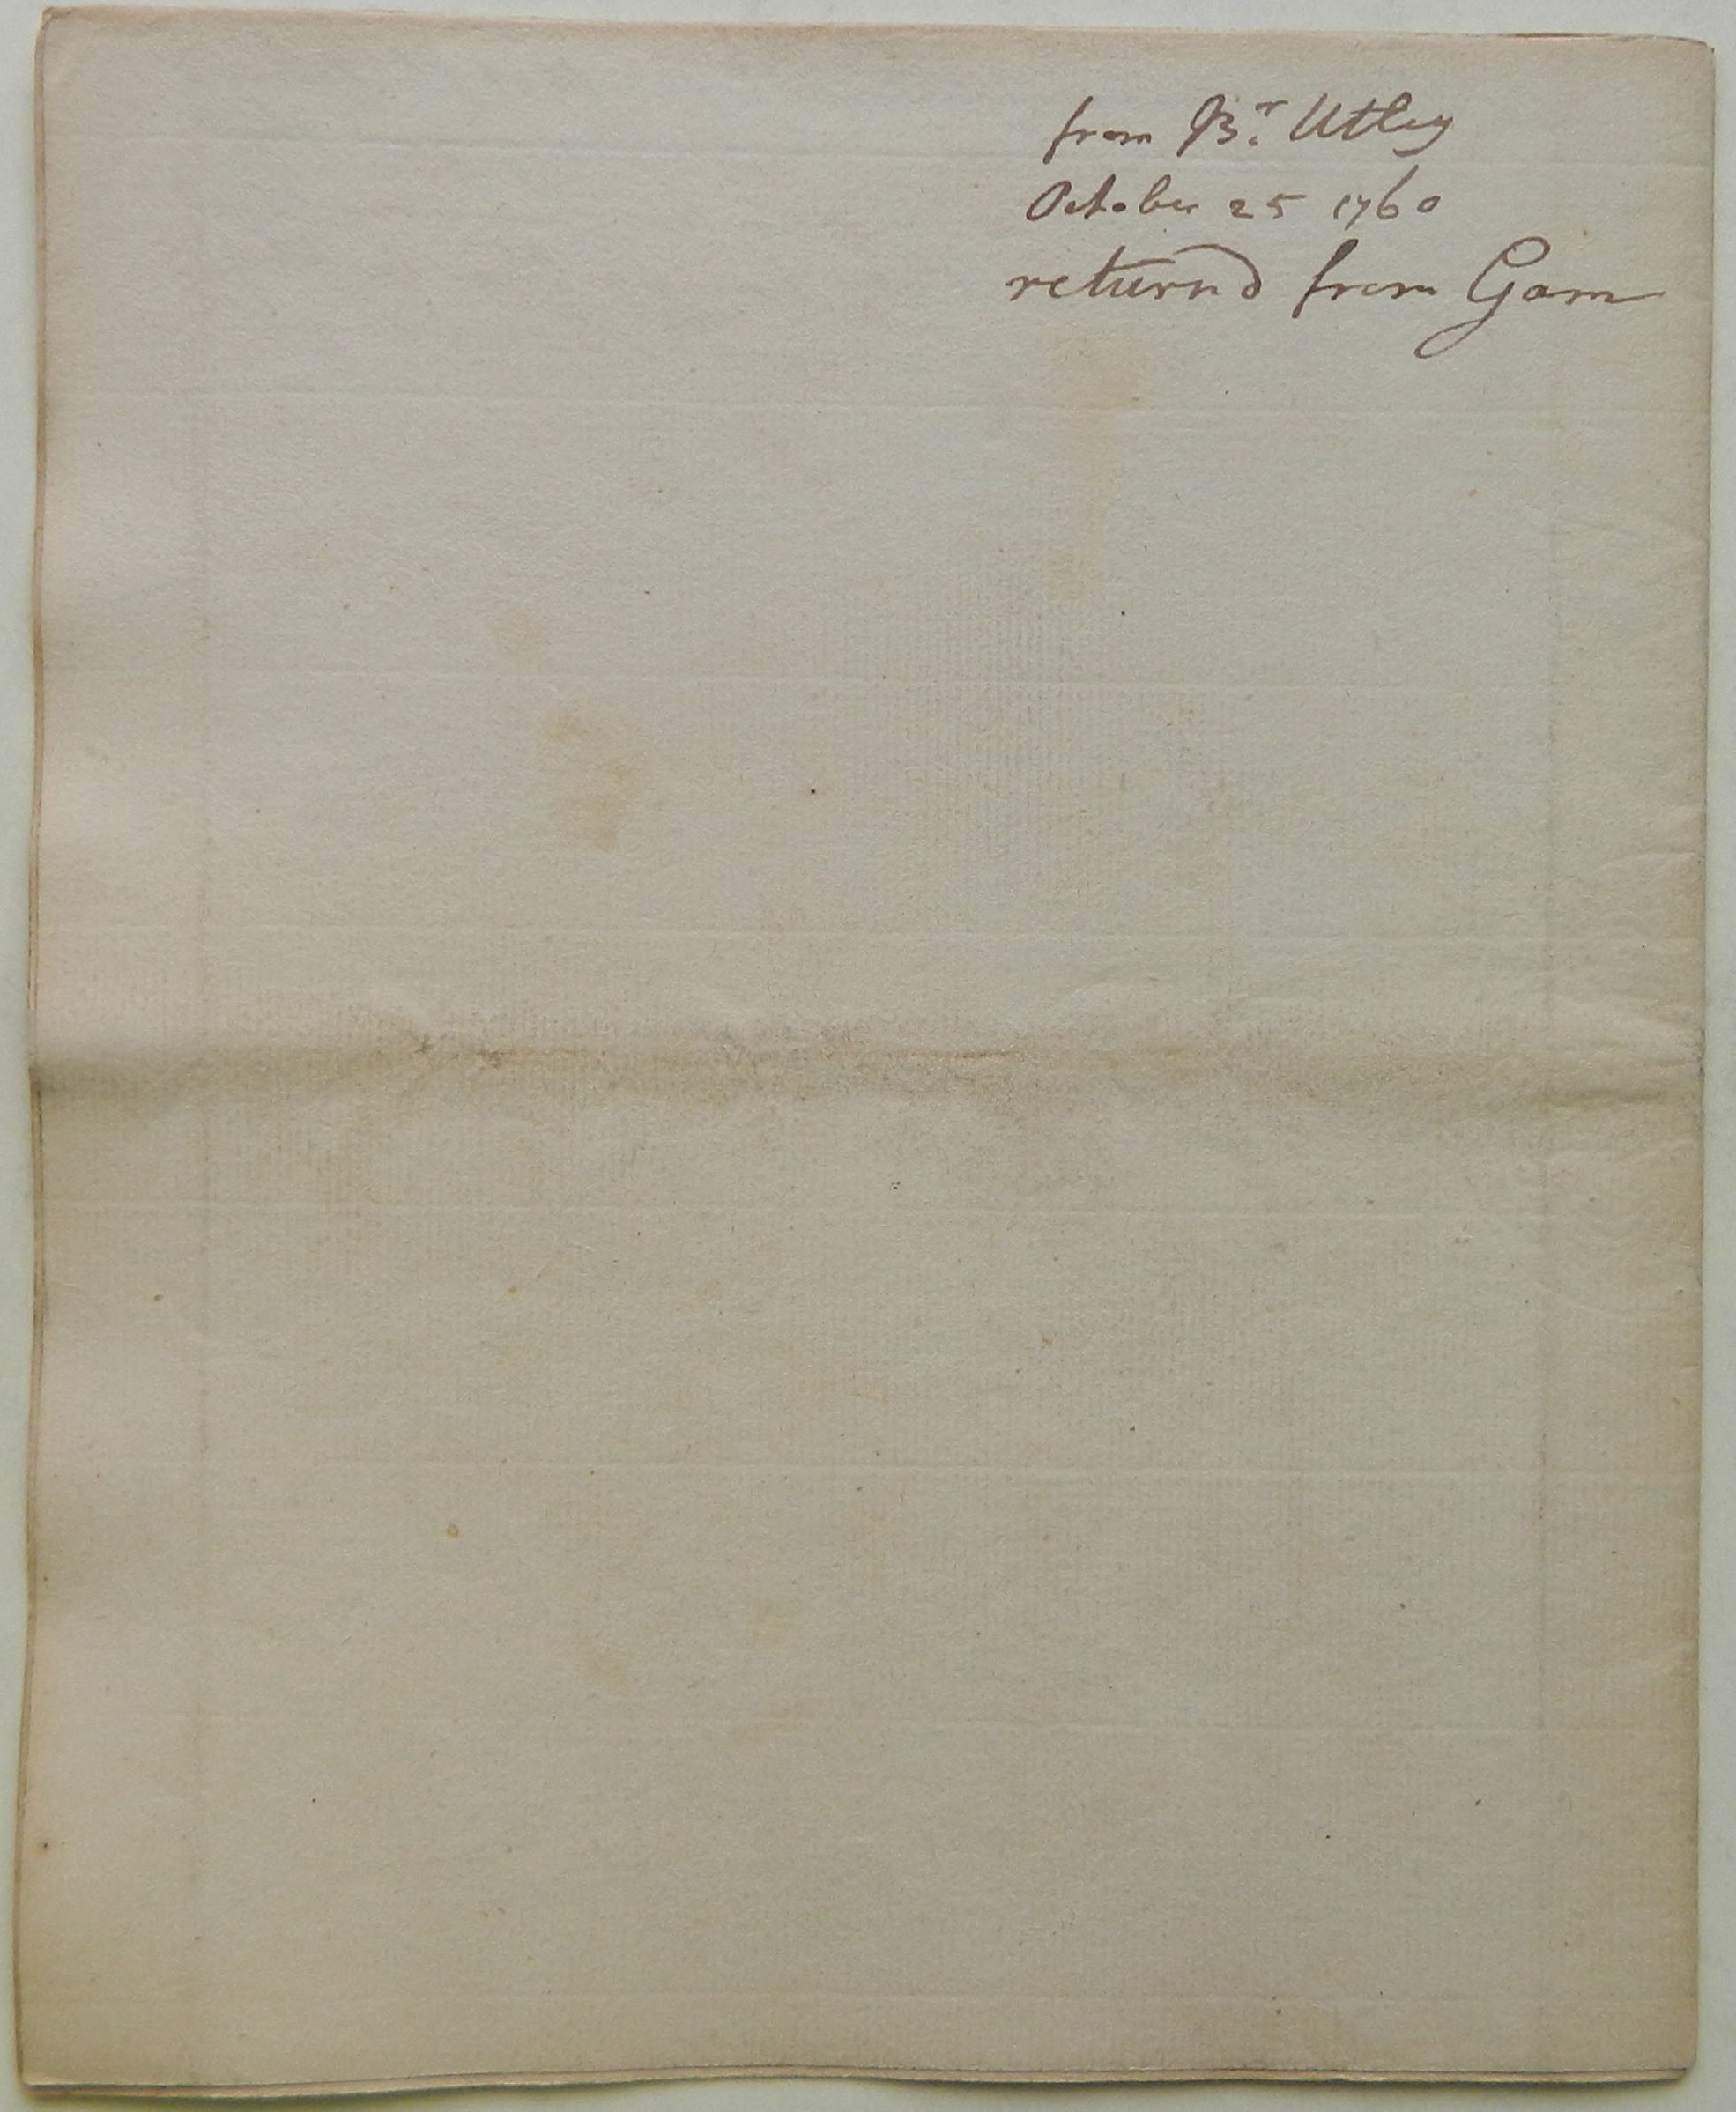 from Br. Utley
October 25 1760
returnd from Gam